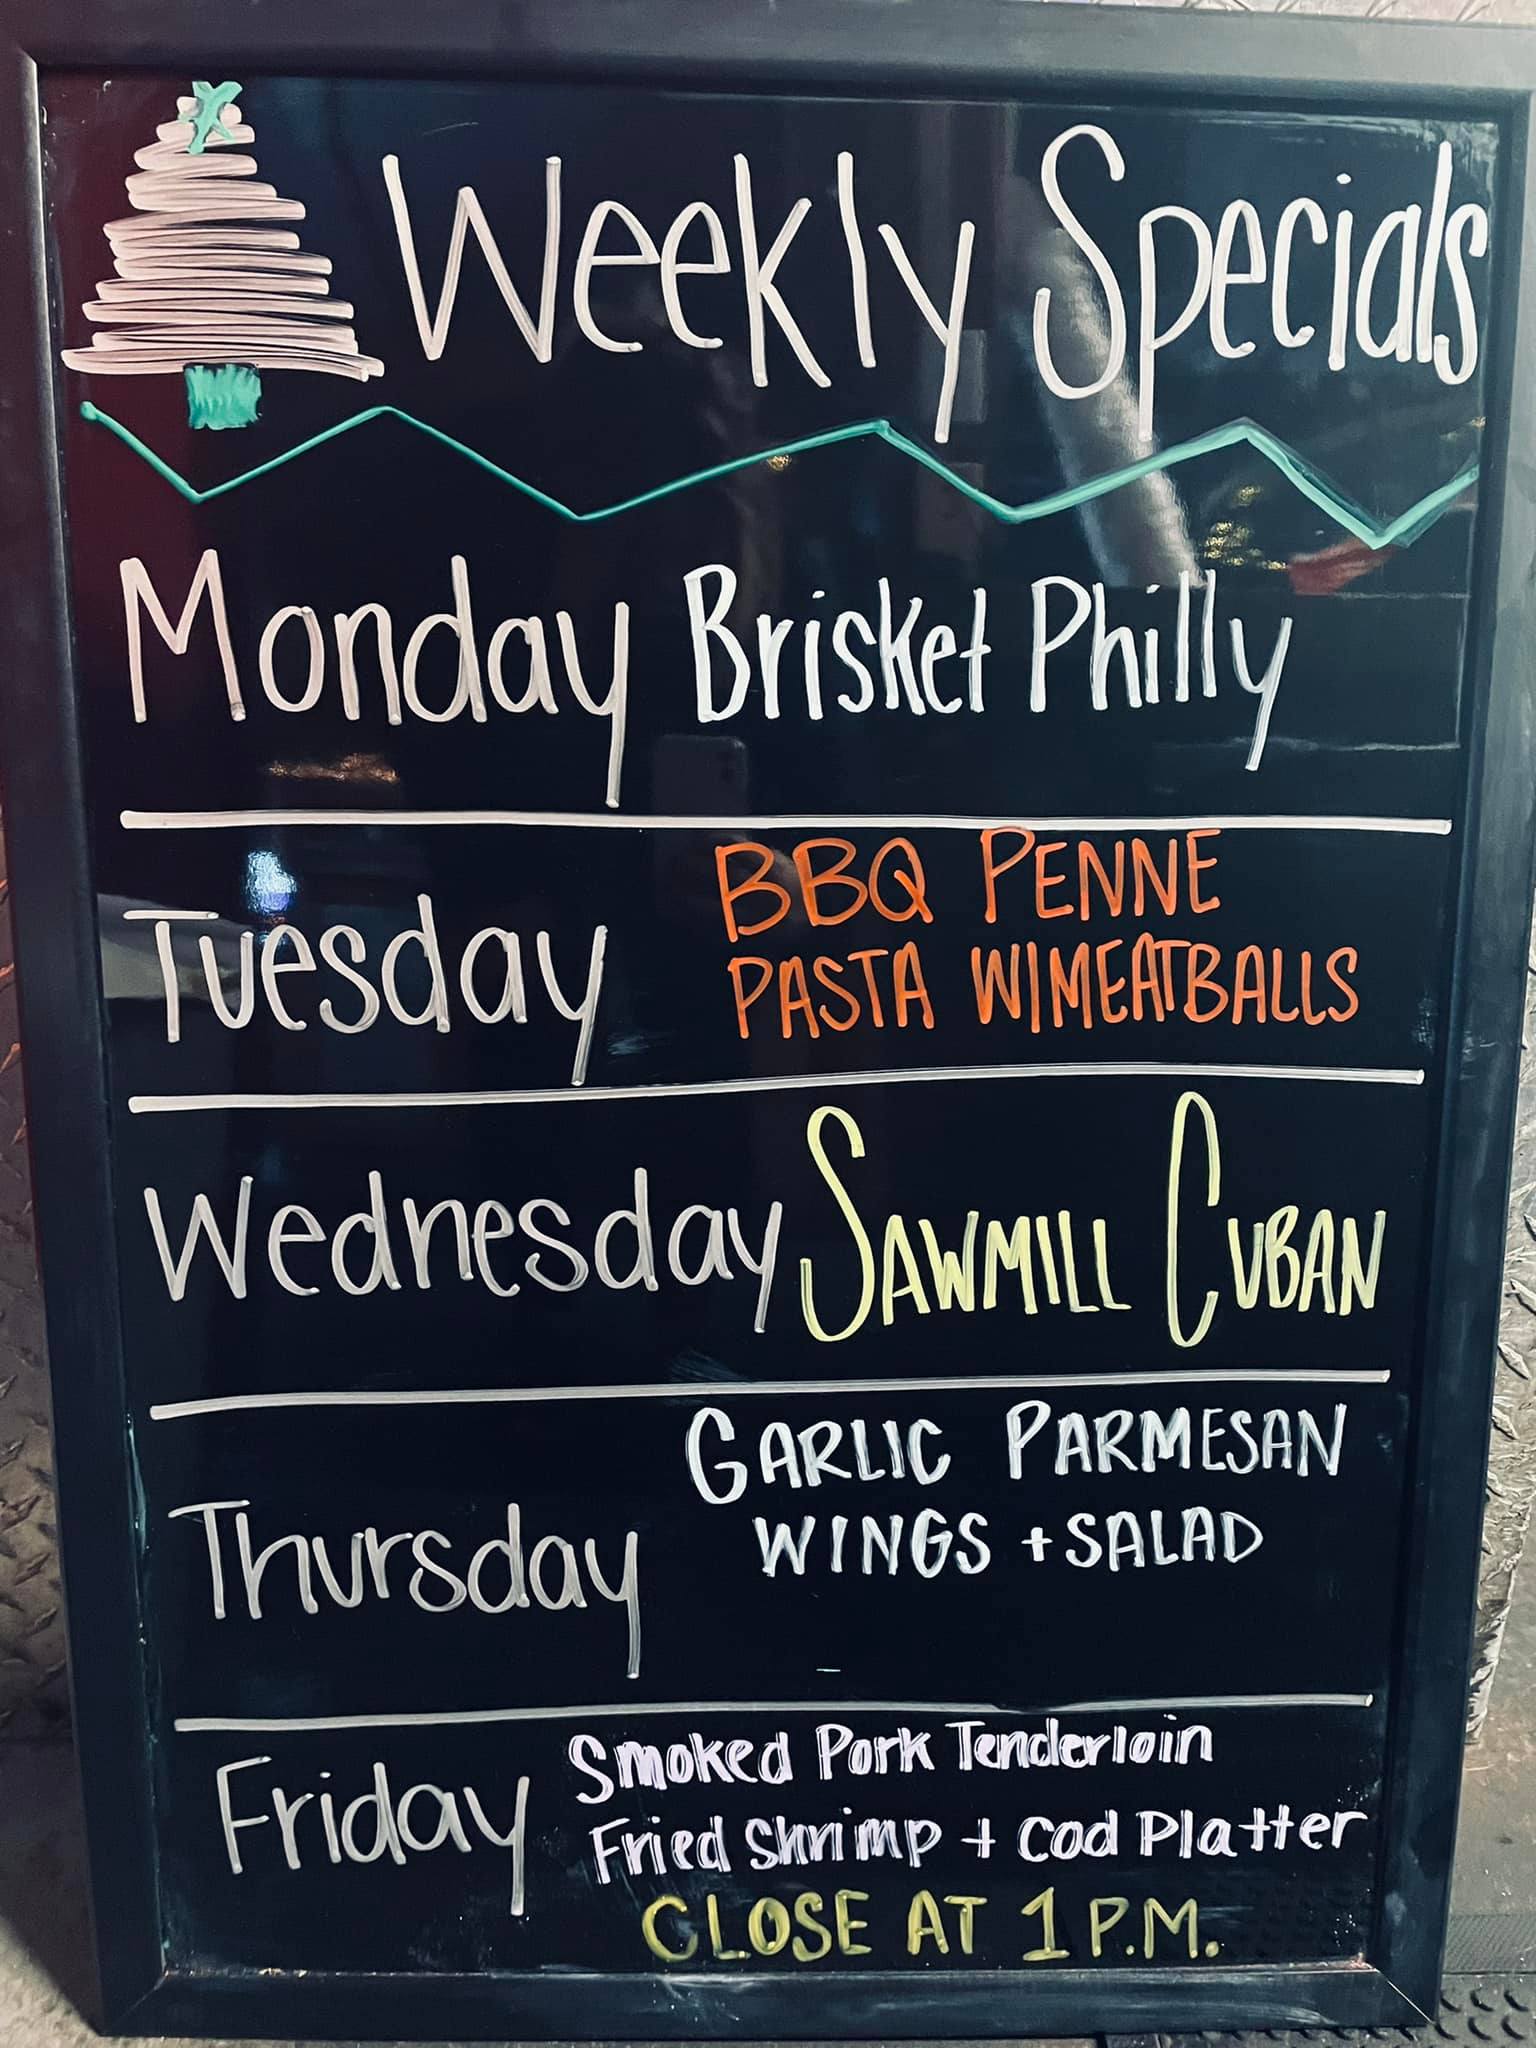 Weekly Specials
Monday Brisket Philly
BBQ PENNE
Tuesday PASTA W/MEATBALLS
Wednesday SAWMILL CUBAN
GARLIC PARMESAN
WINGS + SALAD
Thursday
Smoked Pork Tenderloin
Friday Fried Shrimp + Cod Platter
CLOSE AT 1 P.M.